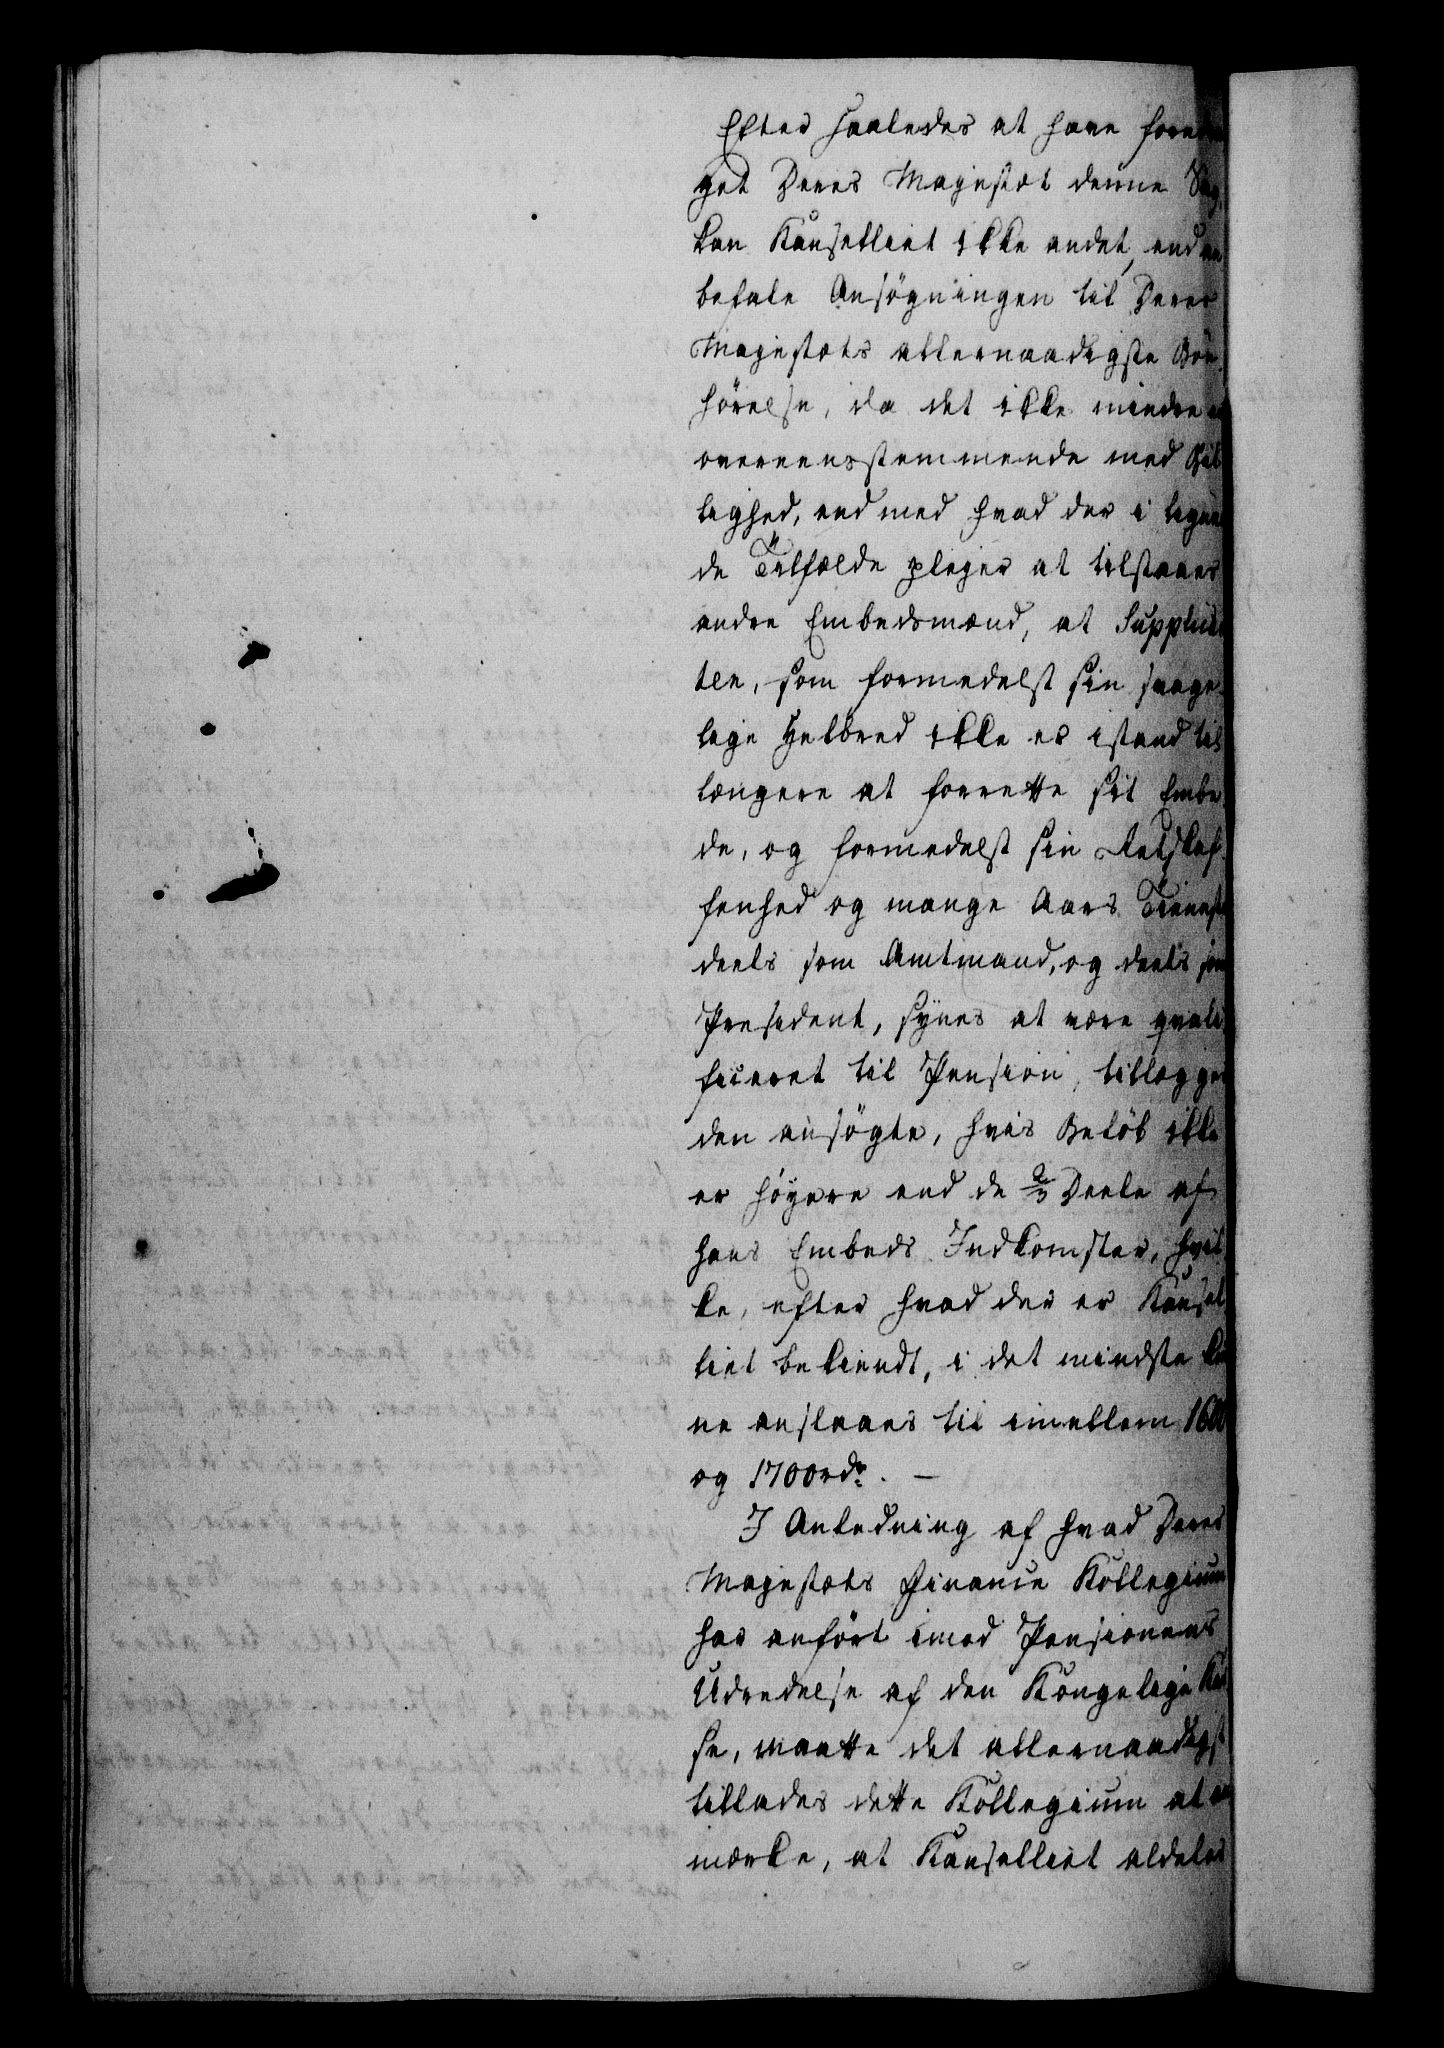 Efter saaledes at have foredra
get Deres Majestæt denne Sag,
kan Kanselliet ikke andet, end an
befale Ansøgningen til Deres
Majestæts allernaadigste Bøn¬
hørelse, da det ikke mindre er
overeensstemmende med Bil
lighed, end med hvad der i lignen
de Tilfælde plejer at tilstaaes
andre Embedsmænd, at Supplikan
ten, som formedelst sin svage¬
lige Helbred ikke er istand til
længere at forrette sit Embe
de, og formedelst sin Retskaf¬
fenhed og mange Aars Tieneste
deels som Amtmand, og deels som
Præsident, synes at være qvali
ficeret til Pension, tillægges
den ansøgte, hvis Beløb ikke
er høyere end de 2/3 Deele af
hans Embeds Indkomster, hvil
ke, efter hvad der er Kansel
liet bekiendt, i det mindste kun
ne anslaaes til imellem 1600
og 1700 rdr. —
I Anledning af hvad Deres
Majestæts Finance Kollegium
har anført imod Pensionens
Udredelse af den Kongelige Kas
se, maatte det allernaadigst
tillades dette Kollegium at an
mærke, at Kanselliet aldeles